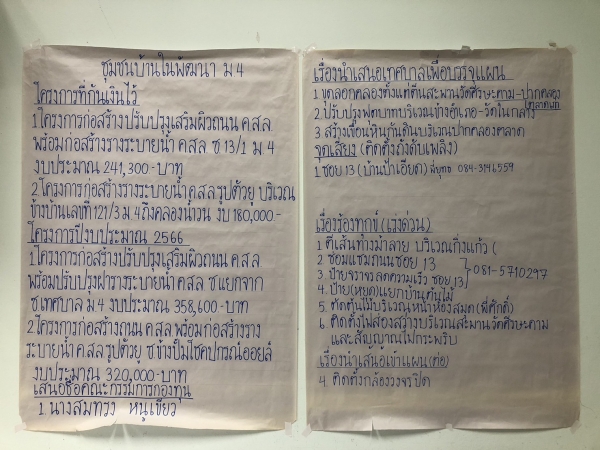 ชุมชนบ้านในพัฒนา ม 4
โครงการที่กันเงินไว้
1 โครงการก่อสร้างปรับปรุงเสริมผิวถนน ค ส ล
พร้อมก่อสร้างรางระบายน้ำ ค ส ล ซ 13/1 ม 4
งบประมาณ 241,300-บาท
2 โครงการก่อสร้างรางระบายน้ำ ค ส ล รูปตัวยู บริเวณ
ข้างบ้านเลขที่ 121/3 ม 4 ถึงคลองน้ำวน งบ 180,000-
โครงการปีงบประมาณ 2566
1 โครงการก่อสร้างปรับปรุงเสริมผิวถนน ค ส ล
พร้อมปรับปรุงฝารางระบายน้ำ ค ส ล ซ แยกจาก
ซ เทศบาล ม.4 งบประมาณ 358,600-บาท
2 โครงการก่อสร้างถนน ค ส ล พร้อมก่อสร้างราง
ระบายน้ำ ค ส ล รูปตัวยู ซ ข้างปั๊มโชคปกรณ์ออยล์
งบประมาณ 320,000-บาท
เสนอชื่อคณะกรรมการกองทุน
1 นางสมทรง หนูเขียว
เรื่องนำเสนอเทศบาลเพื่อบรรจุแผน
1 ขุดลอกคลองตั้งแต่ตีนสะพานวัดศีรษะคาม-ปากคลอง
ตลาดนก
2 ปรับปรุงฟุตบาทบริเวณข้างอำเภอ-วัดในกลาง
3 สร้างเขื่อนหินกันดินบริเวณปากคลองตลาด
จุดเสี่ยง (ติดตั้งถังดับเพลิง)
1 ซอย 13 (บ้านป้าเอียด) 084-3146559
เรื่องร้องทุกข์ (เร่งด่วน)
1 ตีเส้นทางม้าลาย บริเวณกิ่งแก้ว (
2 ซ่อมแซมถนนซอย 13
3 ป้ายจราจรลดความเร็ว ซอย 13 081-5710297
4 ป้าย (หยุด) แยกบ้านต้นไม้
5 ตัดต้นไม้บริเวณหน้าห้องสมุด (พี่ศักดิ์)
6 ติดตั้งไฟส่องสว่างบริเวณสะพานวัดศีรษะคาม
และสัญญาณไฟกระพริบ
เรื่องนำเสนอเข้าแผน (ต่อ)
4. ติดตั้งกล้องวงจรปิด